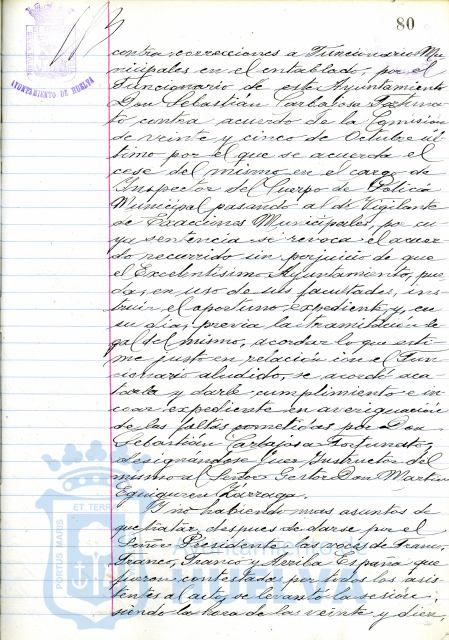 80
AYUNTAMIENTO DE HUELVA
contra correcciones a Funcionarios Mu-
nicipales en el entablado, por el
Funcionario de este Ayuntamiento
Don Sebastián Carbajosa Fortuna-
to, contra acuerdo de la Comisión
de veinte y cinco de Octubre úl-
timo por el que se acuerda el
cese del mismo en el cargo de
Inspector del Cuerpo de Policía
Municipal pasando al de Vigilante
de Exacciones Municipales, por cu-
ya sentencia se revoca el acuer-
do recurrido sin perjuicio de que
el Excelentísimo Ayuntamiento, pue-
da, en uso de sus facultades, ins-
truir el oportuno expediente y, en
su día, previa la tramitación le-
gal del mismo, acordar lo que esti-
me justo en relación con el Fun-
cionario aludido, se acordó aca-
tarla y darle cumplimiento e in-
coar expediente en averiguación
de las faltas cometidas por Don
Sebastián Carbajosa Fortunato,
designándose Juez Instructor del
mismo al Señor Gestor Don Martin
Eguiguren
Y no habiendo mas asuntos de
que tratar, despues de darse por el
Señor Presidente las voces de Franco,
Franco, Franco y Arriba España que
fueron contestadas por todos los asis-
tentes al acto, se levantó la sesión,
siendo la hora de las veinte y diez,
PORTUS MARIS ET TERRÆ
Ayuntamiento de
HUELVA